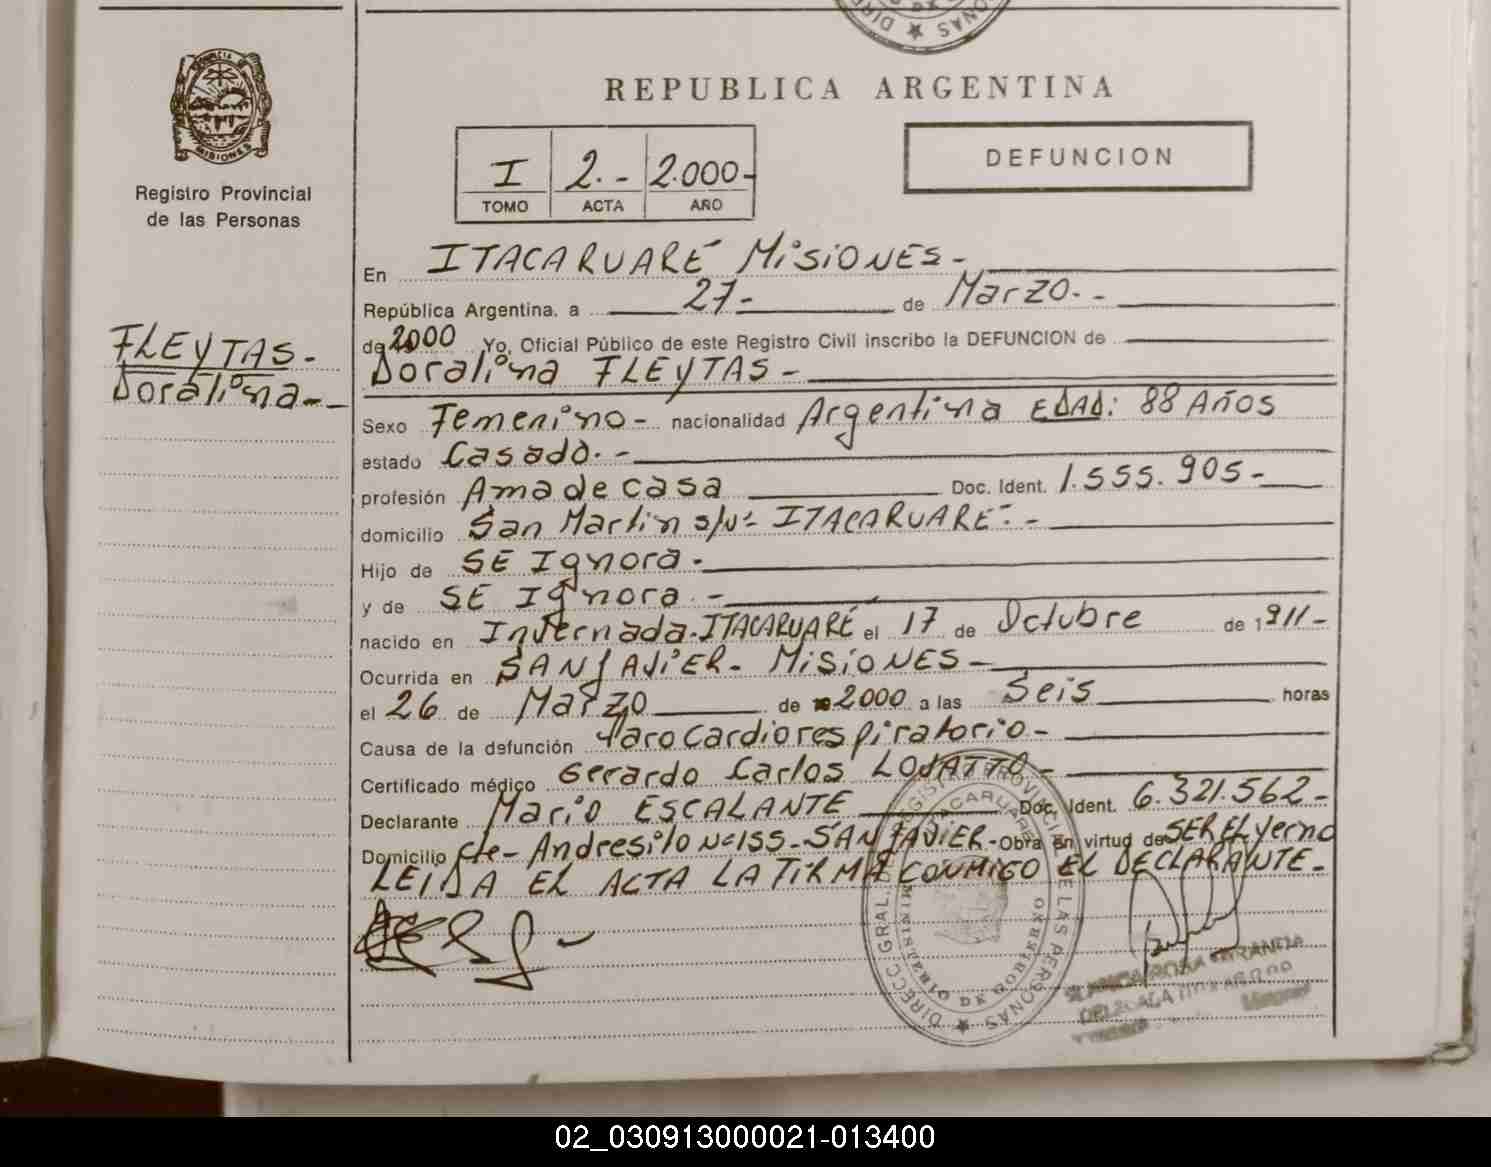 REPUBLICA ARGENTINA
PROVINCIA DE
MISIONES
Registro Provincial
de las Personas
I 2.- 2.000-
TOMO ACTA AÑO
DEFUNCION
FLEYTAS.-
Doralina--
En ITACARUARÉ MISIONES-
República Argentina, a 27- de Marzo.-
de 2000 Yo, Oficial Público de este Registro Civil inscribo la DEFUNCION de
Doralina FLEYTAS-
Sexo Femenino- nacionalidad Argentina EDAD: 88 Años
estado Casado.-
profesión Ama de casa Doc. Ident. 1.555.905-
domicilio San Martín s/Nº ITACARUARÉ.-
Hijo de SE Ignora-
y de SE Ignora.-
nacido en Invernada-ITACARUARÉ el 17 de Octubre de 1911-
Ocurrida en SAN JAVIER- MISIONES-
el 26 de Marzo de 2000 a las Seis horas
Causa de la defunción Paro Cardiorespiratorio-
Certificado médico Gerardo Carlos
Declarante Mario ESCALANTE Doc. Ident. 6.321.562-
Domicilio Cte- Andresito Nº155-SAN JAVIER- Obra en virtud de SER EL yerno
LEIDA EL ACTA LA FIRMA CONMIGO EL DECLARANTE-
DIRECC. GRAL. REGISTRO PROVINCIAL DE LAS PERSONAS
ITACARUARE
MINISTERIO DE GOBIERNO
02_030913000021-013400